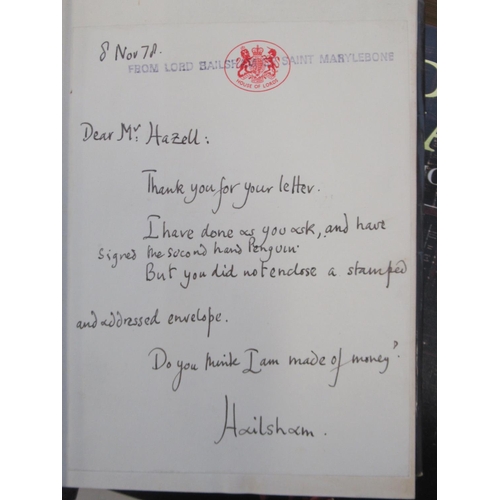 8 Nov 78.
FROM LORD HAILSHAM SAINT MARYLEBONE
HOUSE OF LORDS
Dear Mr. Hazell:
Thank you for your letter.
I have done as you ask, and have
signed the second hand Penguin.
But you did not enclose a stamped
and addressed envelope.
Do you think I am made of money?
Hailsham.